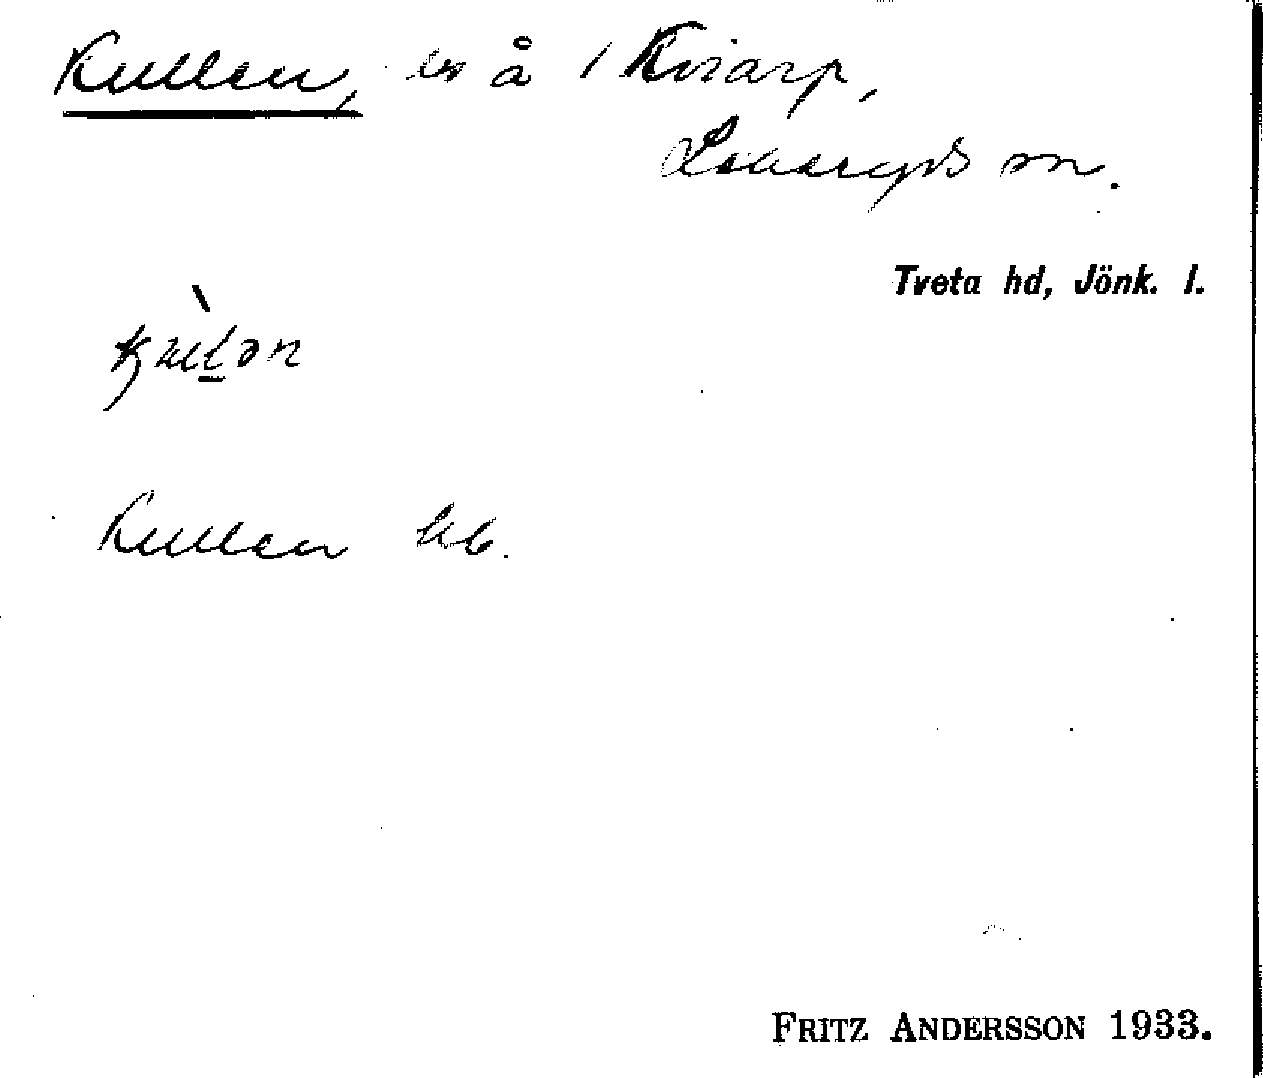 Kullen, ler å 1 Kviarp,
Lekeryds sn.
Tveta hd, Jönk. l.
Kullen
FRITZ ANDERSSON 1933.